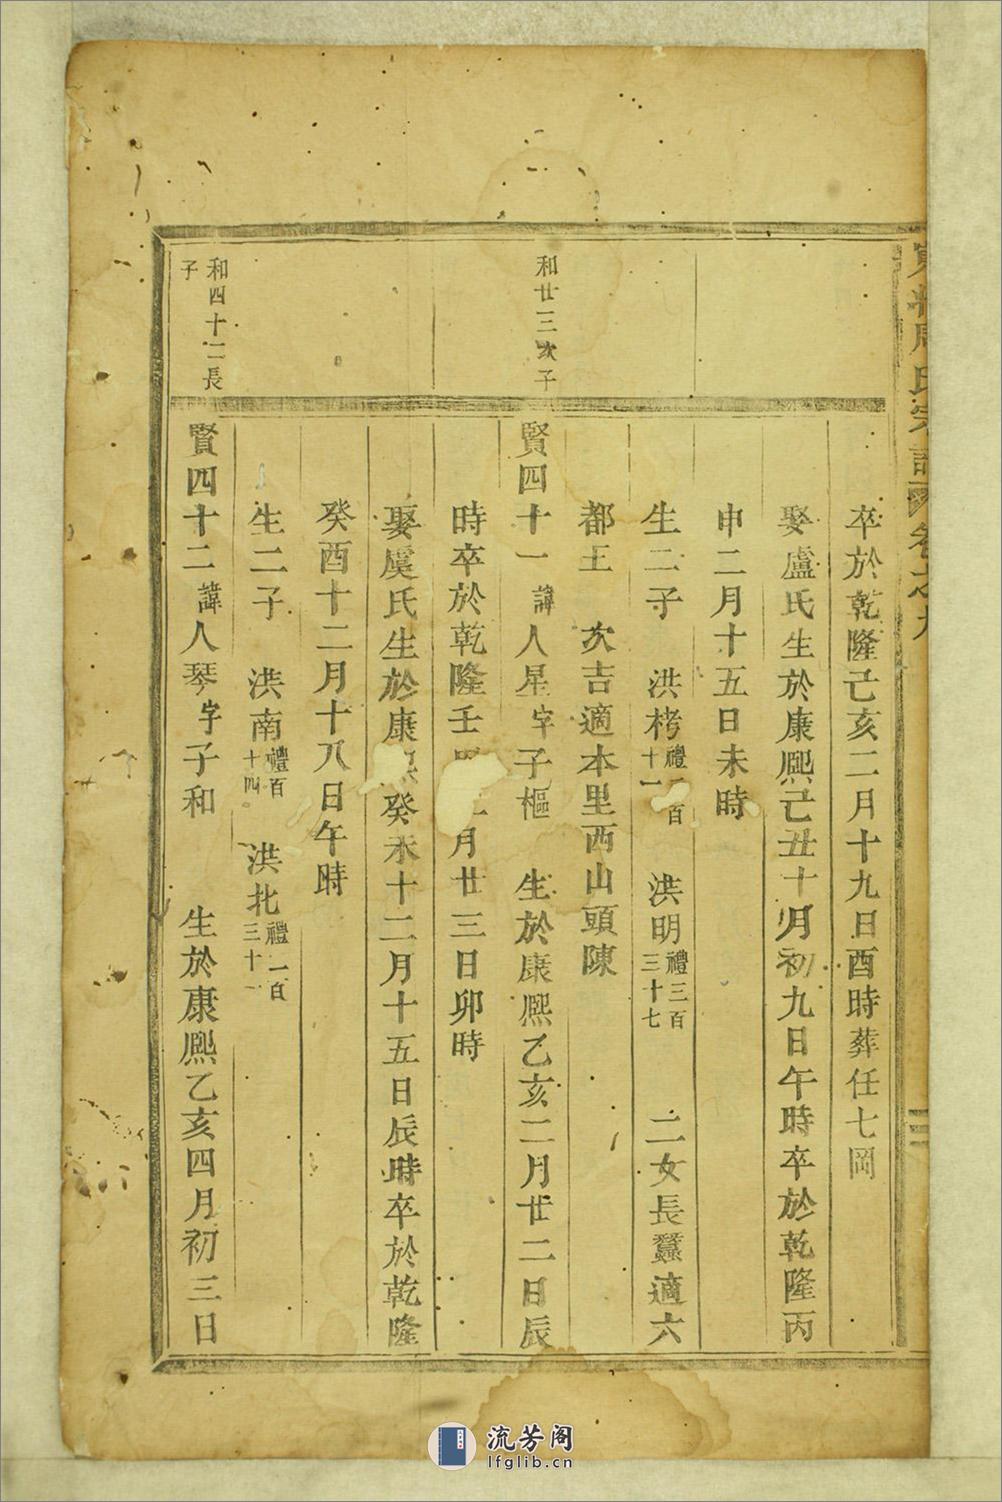 周氏宗譜 卷之九
卒於乾隆己亥二月十九日酉時葬任七岡
娶盧氏生於康熙己丑十月初九日午時卒於乾隆丙
申二月十五日未時
生二子 洪栲禮一百十一 洪明禮三百三十七 二女長蠶適六
都王 次吉適本里西山頭陳
和廿三次子
賢四十一諱人星字子樞 生於康熙乙亥二月廿二日辰
時卒於乾隆壬 月廿三日卯時
娶虞氏生於康熙癸未十二月十五日辰時卒於乾隆
癸酉十二月十八日午時
生二子 洪南禮百十四 洪北禮一百三十一
和四十二長子
賢四十二諱人琴字子和 生於康熙乙亥四月初三日
流芳阁
lfglib.cn